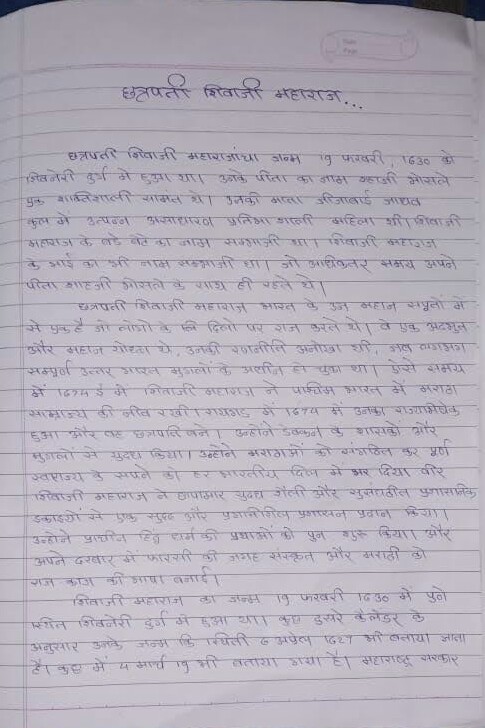 छत्रपती शिवाजी महाराज...
छत्रपती शिवाजी महाराजांचा जन्म 19 फरवरी, 1630 को
शिवनेरी दुर्ग में हुआ था। उनके पिता का नाम शहाजी भोसले
एक शक्तिशाली सामंत थे। उनकी माता जीजाबाई जाधव
कुल में उत्पन्न असाधारण प्रतिभा शाली महिला थी। शिवाजी
महाराज के बडे बेटे का नाम सम्भाजी था। शिवाजी महाराज
के भाई का भी नाम सम्भाजी था। जो अधिकतर समय अपने
पिता शाहजी भोसले के साथ ही रहते थे।
छत्रपती शिवाजी महाराज भारत के उन महान सपूतों में
से एक है जो लोगों के दिलो पर राज करते थे। वे एक अदभुत
और महान योध्दा थे, उनकी रणनीति अनोखा थी, जब लगभग
सम्पूर्ण उत्तर भारत मुगलों के अधीन हो चुका था। ऐसे समय
में 1674 ई में शिवाजी महाराज ने पश्चिम भारत में मराठा
साम्राज्य की नीव रखी। रायगड में 1674 में उनका राज्याभिषेक
हुआ और वह छत्रपति बने। उन्होने डेक्कन के शासको और
मुगलों से युध्द किया। उन्होने मराठाओं को संगठित कर पूर्ण
स्वराज्य के सपने को हर भारतीय दिल में भर दिया। वीर
शिवाजी महाराज ने छापामार युध्द शैली और सुसंगठीत प्रशासनिक
इकाइयों से एक सुदृढ और प्रगतिशील प्रशासन प्रदान किया।
उन्होने प्राचीन हिंदू धर्म की प्रथाओं को पुन शुरू किया। और
अपने दरबार में फारसी की जगह संस्कृत और मराठी को
राज काज की भाषा बनाई।
शिवाजी महाराज का जन्म 19 फरवरी 1630 में पुणे
स्थित शिवनेरी दुर्ग में हुआ था। कुछ दुसरे कैलेंडर के
अनुसार उनके जन्म कि स्थिती 6 अप्रेल 1627 भी बताया जाता
है। कुछ में 4 मार्च 19 भी बताया गया है। महाराष्ट्र सरकार